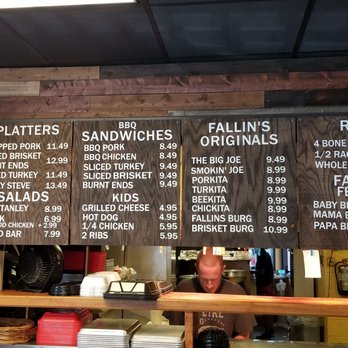 PLATTERS
PORK 11.49
BRISKET 12.99
ENDS
TURKEY 11.49
STEVE 13.49
SALADS
8.99
6.99
CHICKEN +2.99
BAR 7.99
BBQ
SANDWICHES
BBQ PORK 8.49
BBQ CHICKEN 8.49
SLICED TURKEY 8.49
SLICED BRISKET 9.49
BURNT ENDS 9.49
KIDS
GRILLED CHEESE 4.95
HOT DOG 4.95
1/4 CHICKEN 5.95
2 RIBS 5.95
FALLIN'S
ORIGINALS
THE BIG JOE 9.49
SMOKIN' JOE 8.99
PORKITA 8.99
TURKITA 9.49
BEEKITA 9.49
CHICKITA 8.99
FALLINS BURG 8.99
BRISKET BURG 10.99
4 BONE
1/2 RAC
WHOLE
BABY
MAMA
PAPA